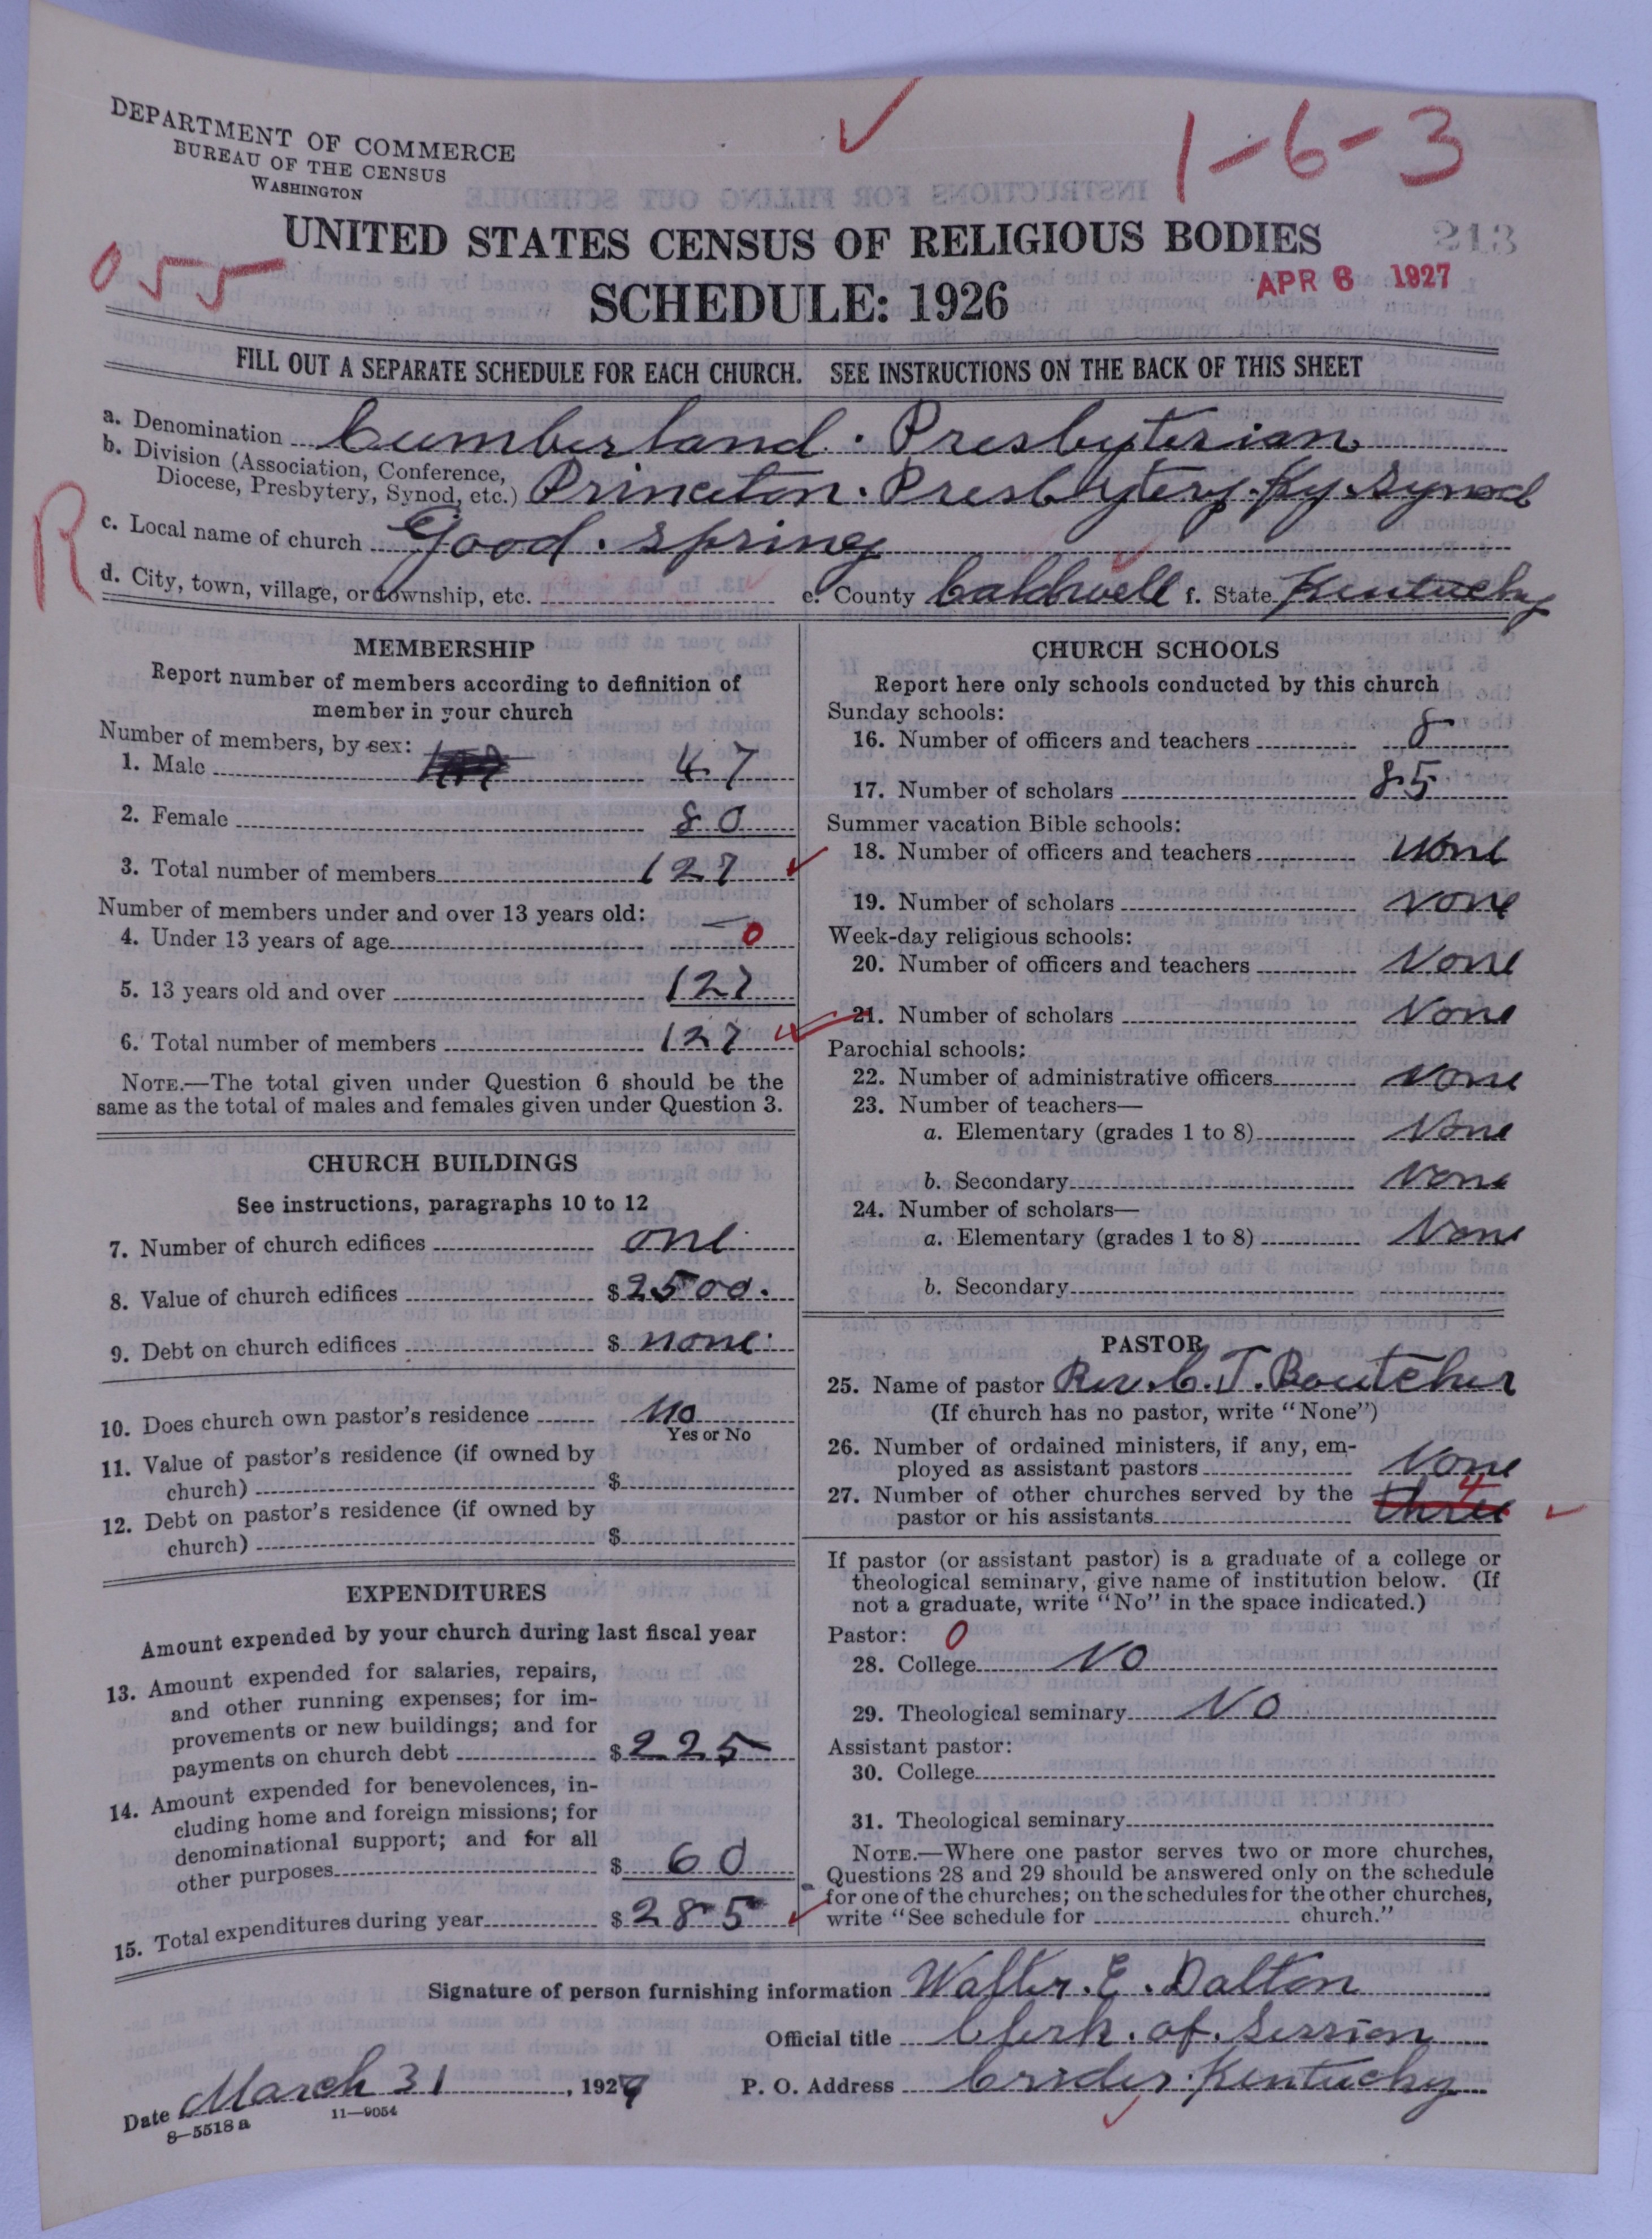 DEPARTMENT OF COMMERCE
BUREAU OF THE CENSUS
WASHINGTON
1-6-3
UNITED STATES CENSUS OF RELIGIOUS BODIES
213
055
SCHEDULE: 1926
APR 6 1927
FILL OUT A SEPARATE SCHEDULE FOR EACH CHURCH. SEE INSTRUCTIONS ON THE BACK OF THIS SHEET
a. Denomination Cumberland. Presbyterian
b. Division (Association, Conference, Diocese, Presbytery, Synod, etc.) Princeton. Presbytery. Ky. Synod
R
c. Local name of church Good. Spring
d. City, town, village, or township, etc. e. County Caldwell f. State Kentucky
MEMBERSHIP
Report number of members according to definition of
member in your church
Number of members, by sex:
1. Male 47
2. Female 80
3. Total number of members 127
Number of members under and over 13 years old:
4. Under 13 years of age 0
5. 13 years old and over 127
6. Total number of members 127
NOTE.—The total given under Question 6 should be the
same as the total of males and females given under Question 3.
CHURCH BUILDINGS
See instructions, paragraphs 10 to 12
7. Number of church edifices one
8. Value of church edifices $2500.
9. Debt on church edifices $ none
10. Does church own pastor's residence No
Yes or No
11. Value of pastor's residence (if owned by
church) $
12. Debt on pastor's residence (if owned by
church) $
EXPENDITURES
Amount expended by your church during last fiscal year
13. Amount expended for salaries, repairs,
and other running expenses; for im-
provements or new buildings; and for
payments on church debt $225
14. Amount expended for benevolences, in-
cluding home and foreign missions; for
denominational support; and for all
other purposes $ 60
15. Total expenditures during year $285
CHURCH SCHOOLS
Report here only schools conducted by this church
Sunday schools:
16. Number of officers and teachers 8
17. Number of scholars 85
Summer vacation Bible schools:
18. Number of officers and teachers None
19. Number of scholars None
Week-day religious schools:
20. Number of officers and teachers None
21. Number of scholars None
Parochial schools:
22. Number of administrative officers None
23. Number of teachers—
a. Elementary (grades 1 to 8) None
b. Secondary None
24. Number of scholars—
a. Elementary (grades 1 to 8) None
b. Secondary
PASTOR
25. Name of pastor Rev. C. T. Boutcher
(If church has no pastor, write "None")
26. Number of ordained ministers, if any, em-
ployed as assistant pastors None
27. Number of other churches served by the
pastor or his assistants three 4
If pastor (or assistant pastor) is a graduate of a college or
theological seminary, give name of institution below. (If
not a graduate, write "No" in the space indicated.)
Pastor: 0
28. College No
29. Theological seminary No
Assistant pastor:
30. College
31. Theological seminary
NOTE.—Where one pastor serves two or more churches,
Questions 28 and 29 should be answered only on the schedule
for one of the churches; on the schedules for the other churches,
write "See schedule for church."
Signature of person furnishing information Walter. E. Dalton
Official title Clerk. of. Session
Date March 31, 1927 P. O. Address Crider. Kentucky
8—5518 a 11—9054